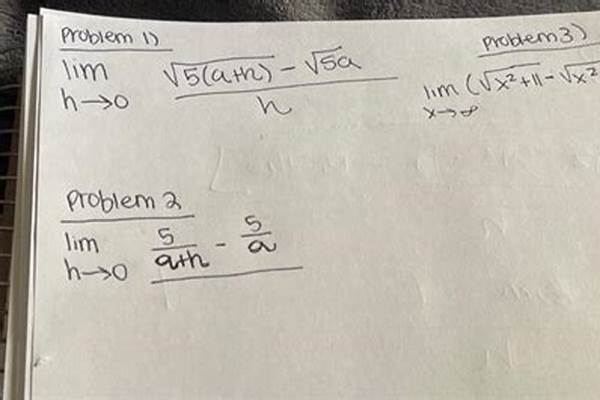 Problem 1)
lim √5(a+h) - √5a
h→0 h
Problem 3)
lim (√x²+11 - √x²
x→∞
Problem 2
lim 5/a+h - 5/a
h→0